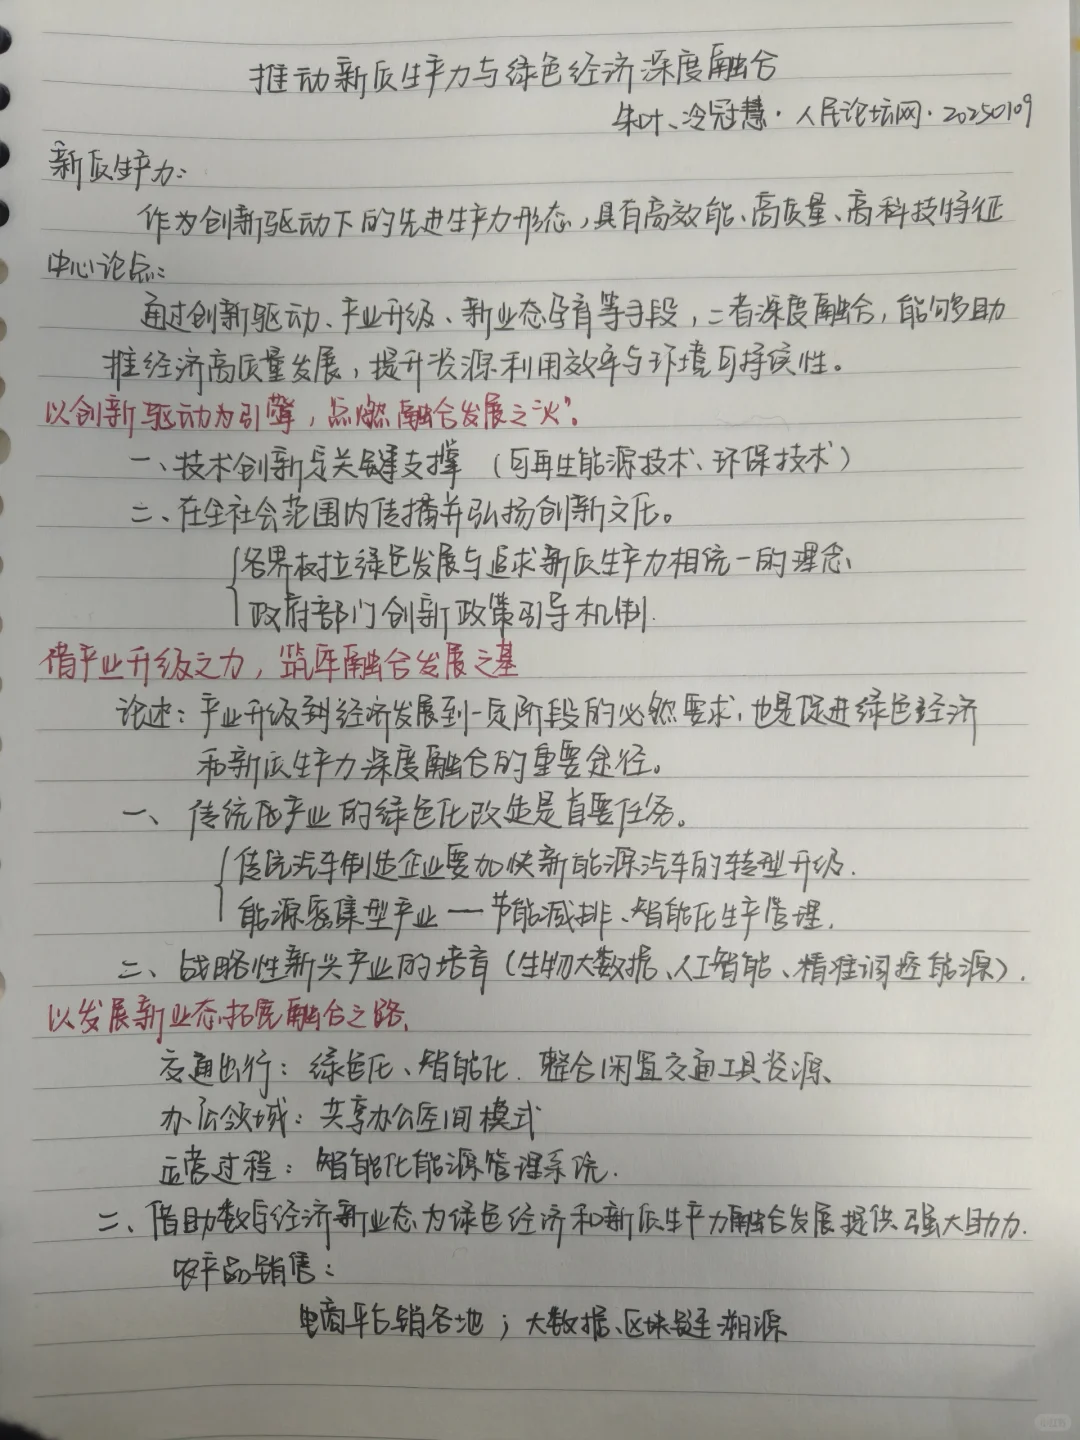 推动新质生产力与绿色经济深度融合
朱叶、冷冠慧·人民论坛网·20250109
新质生产力：
作为创新驱动下的先进生产力形态，具有高效能、高质量、高科技特征
中心论点：
通过创新驱动、产业升级、新业态孕育等手段，二者深度融合，能够助
推经济高质量发展，提升资源利用效率与环境可持续性。
以创新驱动为引擎，点燃融合发展之"火"。
一、技术创新是关键支撑（可再生能源技术、环保技术）
二、在全社会范围内传播并弘扬创新文化。
各界树立绿色发展与追求新质生产力相统一的理念
政府部门创新政策引导机制.
借产业升级之力，筑牢融合发展之基
论述：产业升级到经济发展到一定阶段的必然要求，也是促进绿色经济
和新质生产力深度融合的重要途径。
一、传统产业的绿色化改造是首要任务。
传统汽车制造企业要加快新能源汽车的转型升级.
能源密集型产业——节能减排、智能化生产管理.
二、战略性新兴产业的培育（生物大数据、人工智能、精准调控能源）.
以发展新业态拓宽融合之路.
交通出行：绿色化、智能化. 整合闲置交通工具资源、
办公领域：共享办公空间模式
运营过程：智能化能源管理系统.
二、借助数字经济新业态为绿色经济和新质生产力融合发展提供强大助力.
农产品销售：
电商平台销各地；大数据、区块链溯源
小红书